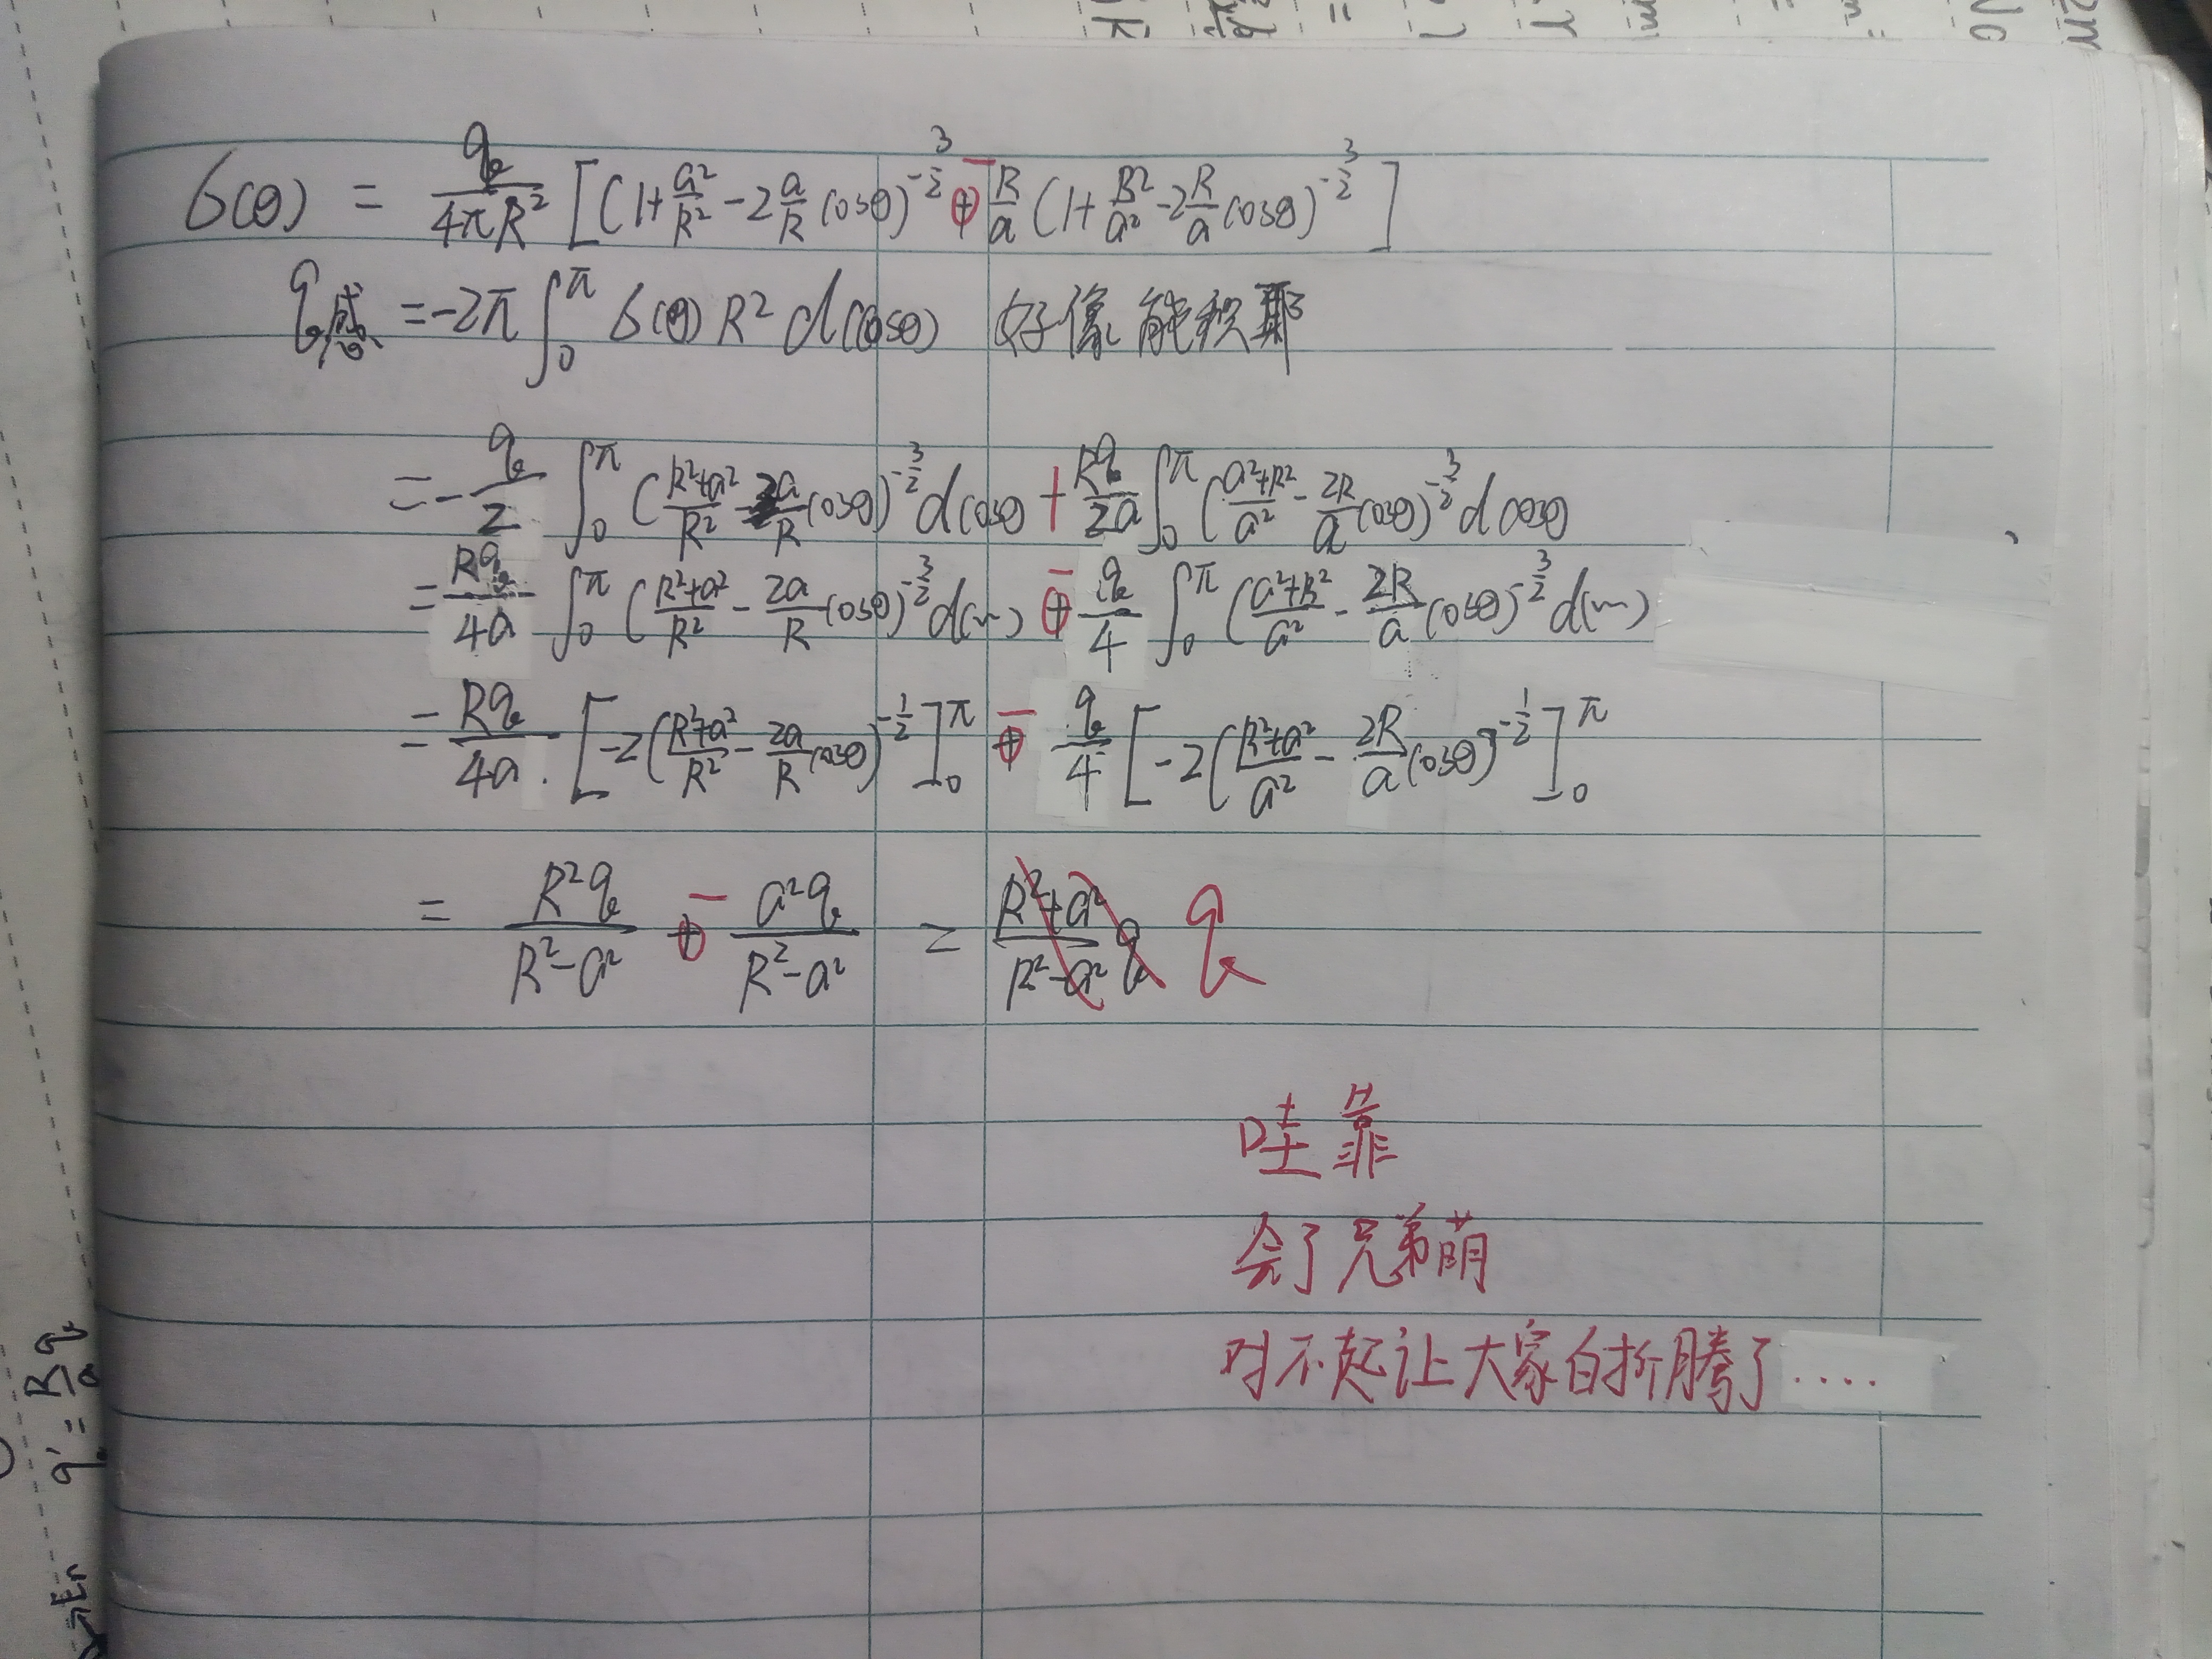 σ(θ) = q/4πR² [(1+a²/R²-2a/R cosθ)^-3/2 - R/a (1+R²/a²-2R/a cosθ)^-3/2]
q感 = -2π∫₀^π σ(θ) R² d cosθ 好像能积耶
= -q/2 ∫₀^π (R²+a²/R² - 2a/R cosθ)^-3/2 d cosθ + Rq/2a ∫₀^π (a²+R²/a² - 2R/a cosθ)^-3/2 d cosθ
= Rq/4a ∫₀^π (R²+a²/R² - 2a/R cosθ)^-3/2 d(~) - q/4 ∫₀^π (a²+R²/a² - 2R/a cosθ)^-3/2 d(~)
= Rq/4a · [-2(R²+a²/R² - 2a/R cosθ)^-1/2]₀^π - q/4 [-2(R²+a²/a² - 2R/a cosθ)^-1/2]₀^π
= R²q/R²-a² - a²q/R²-a² = R²+a²/R²-a² q q
哇靠
会了兄弟萌
对不起让大家白折腾了....
q' = R/a q
En